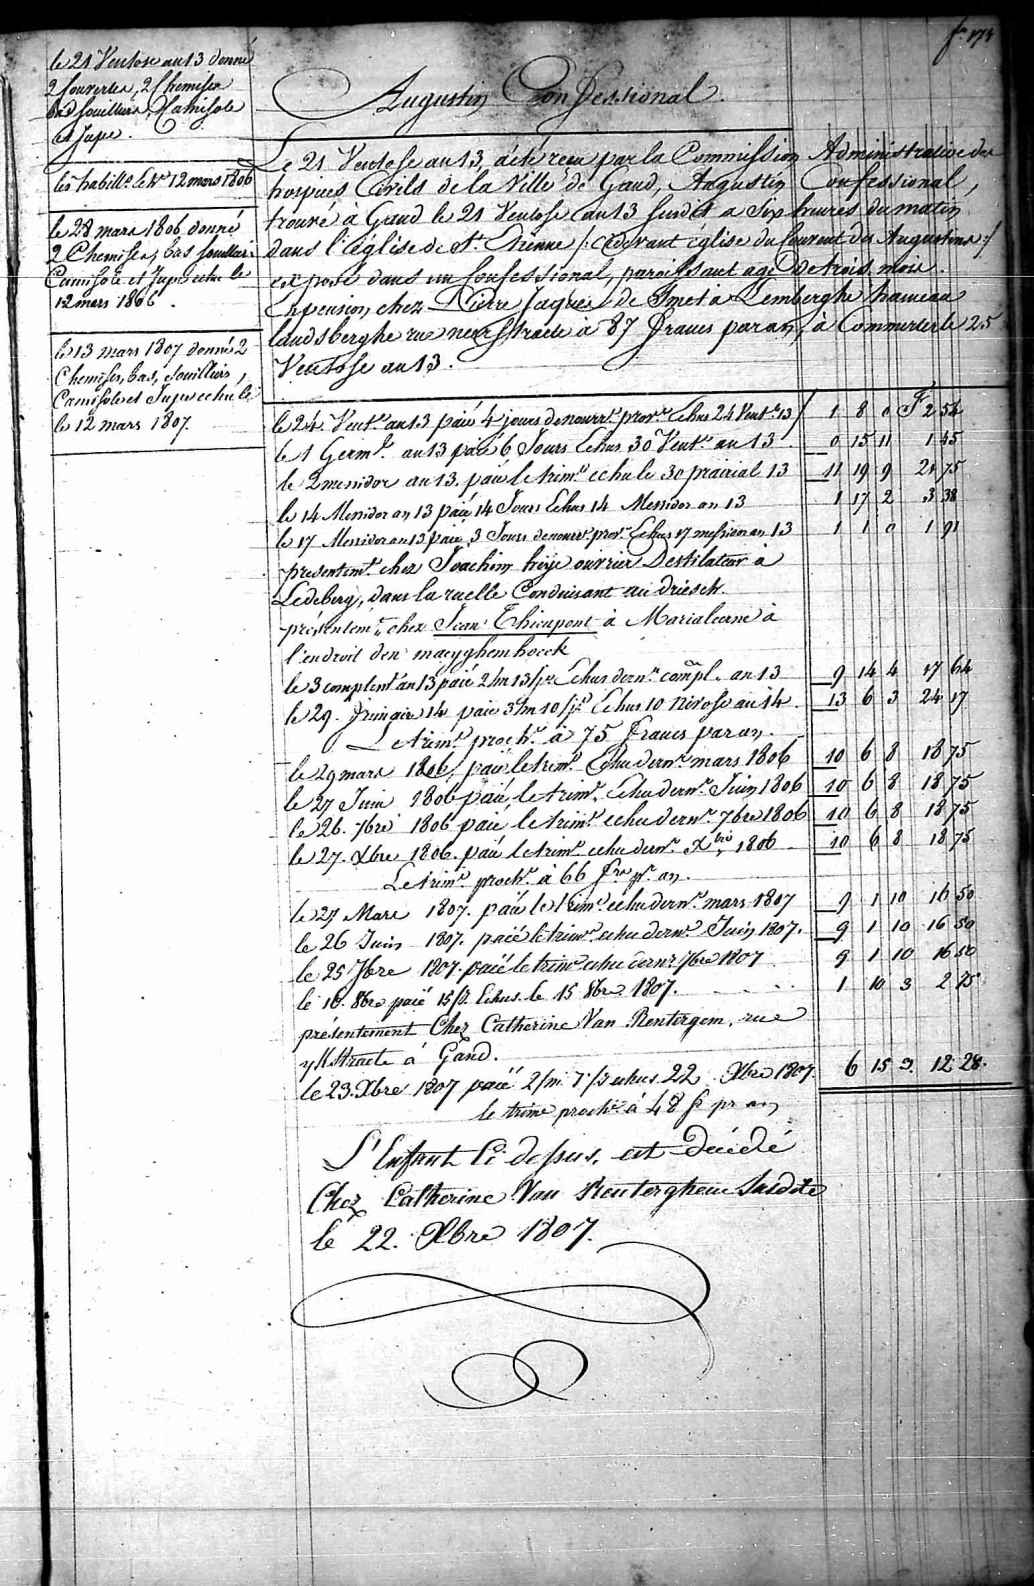 fo 174
le 21 Ventose an 13 donné
2 Couvertes, 2 Chemises
bas souilliers, Camisole
et Jupe.
les habill.s le Ve 12 mars 1806
le 28 mars 1806 donné
2 Chemises, bas souilliers
Camisole et Jupe echu le
12 mars 1806.
le 13 mars 1807 donné 2
Chemises, bas, souilliers,
Camisole et Jupe echu le
le 12 mars 1807.
Augustin Confessional.
Le 21 Ventose an 13, a été reçu par la Commission Administrative des
hospices Civils de la Ville de Gand, Augustin Confessional,
trouvé à Gand le 21 Ventose an 13 susdit a six heures du matin
dans l'église de St. Etienne /: cidevant église du Couvent des Augustins :/
exposé dans un Confessional, paroissant agé de trois mois.
En pension, chez Pierre Jaques de Smet à Lemberghe hameau
landsberghe rue neerstraete a 87 francs par an, à Commencer le 25
Ventose an 13.
le 24 Vent.e an 13 paié 4 jours de nourr.e prov.re Echus 24 Vent.e 13 / 1 8 0 F 2 54
le 1 Germ.l an 13 paié 6 Jours Echus 30 Vent.e an 13 0 15 11 1 45
le 2 messidor an 13. paié le trim.e echu le 30 prairial 13 11 19 9 21 75
le 14 Messidor an 13 paié 14 Jours Echus 14 Messidor an 13 1 17 2 3 38
le 17 Messidor an 13 paié 3 Jours de nourr.e prov.e Echus 17 messidor an 13 1 1 0 1 91
presentem.t chez Joachim heije ouvrier Destilateur à
Ledeberg, dans la ruelle Conduisant au driesch.
présentem.t chez Jean Thienpont à Mariakerne à
l'endroit den maeyghem hoeck
le 3 complent.e an 13 paié 2/m 13/jrs Echus dern.r compl.re an 13 9 14 4 17 64
le 29. frimaire 14 paié 3/m 10/jrs Echus 10 Nivose an 14. 13 6 3 24 17
Le trim.e proch.n à 75 francs par an.
le 29 mars 1806, paié le trim.e Echu dern.r mars 1806 10 6 8 18 75
le 27 Juin 1806 paié, le trim.e Echu dern.r Juin 1806 10 6 8 18 75
le 26. 7bre 1806 paié le trim.e echu dern.r 7bre 1806 10 6 8 18 75
le 27. Xbre 1806. paié le trim.e echu dern.r Xbre 1806 10 6 8 18 75
Le trim.e proch.n à 66 frs pr. an.
le 27 Mars 1807. paié le trim.e echu dern.r mars 1807 9 1 10 16 50
le 26 Juin 1807. paié le trim.e echu dern.r Juin 1807. 9 1 10 16 50
le 25 7bre 1807. paié le trim.e echu dern.r 7bre 1807 9 1 10 16 50
le 16. 8bre paié 15/j. Echus le 15 8bre 1807. 1 10 3 2 75
présentement Chez Catherine Van Rentergem, rue
à Gand.
le 23. Xbre 1807 paié 2/m 7/j echus 22 Xbre 1807. 6 15 3 12 28.
le trime proch.n à 48 fr pr an,
L'Enfant Ci dessus, est Décédé
Chez Catherine Van Renterghem Susdite
le 22. Xbre 1807.